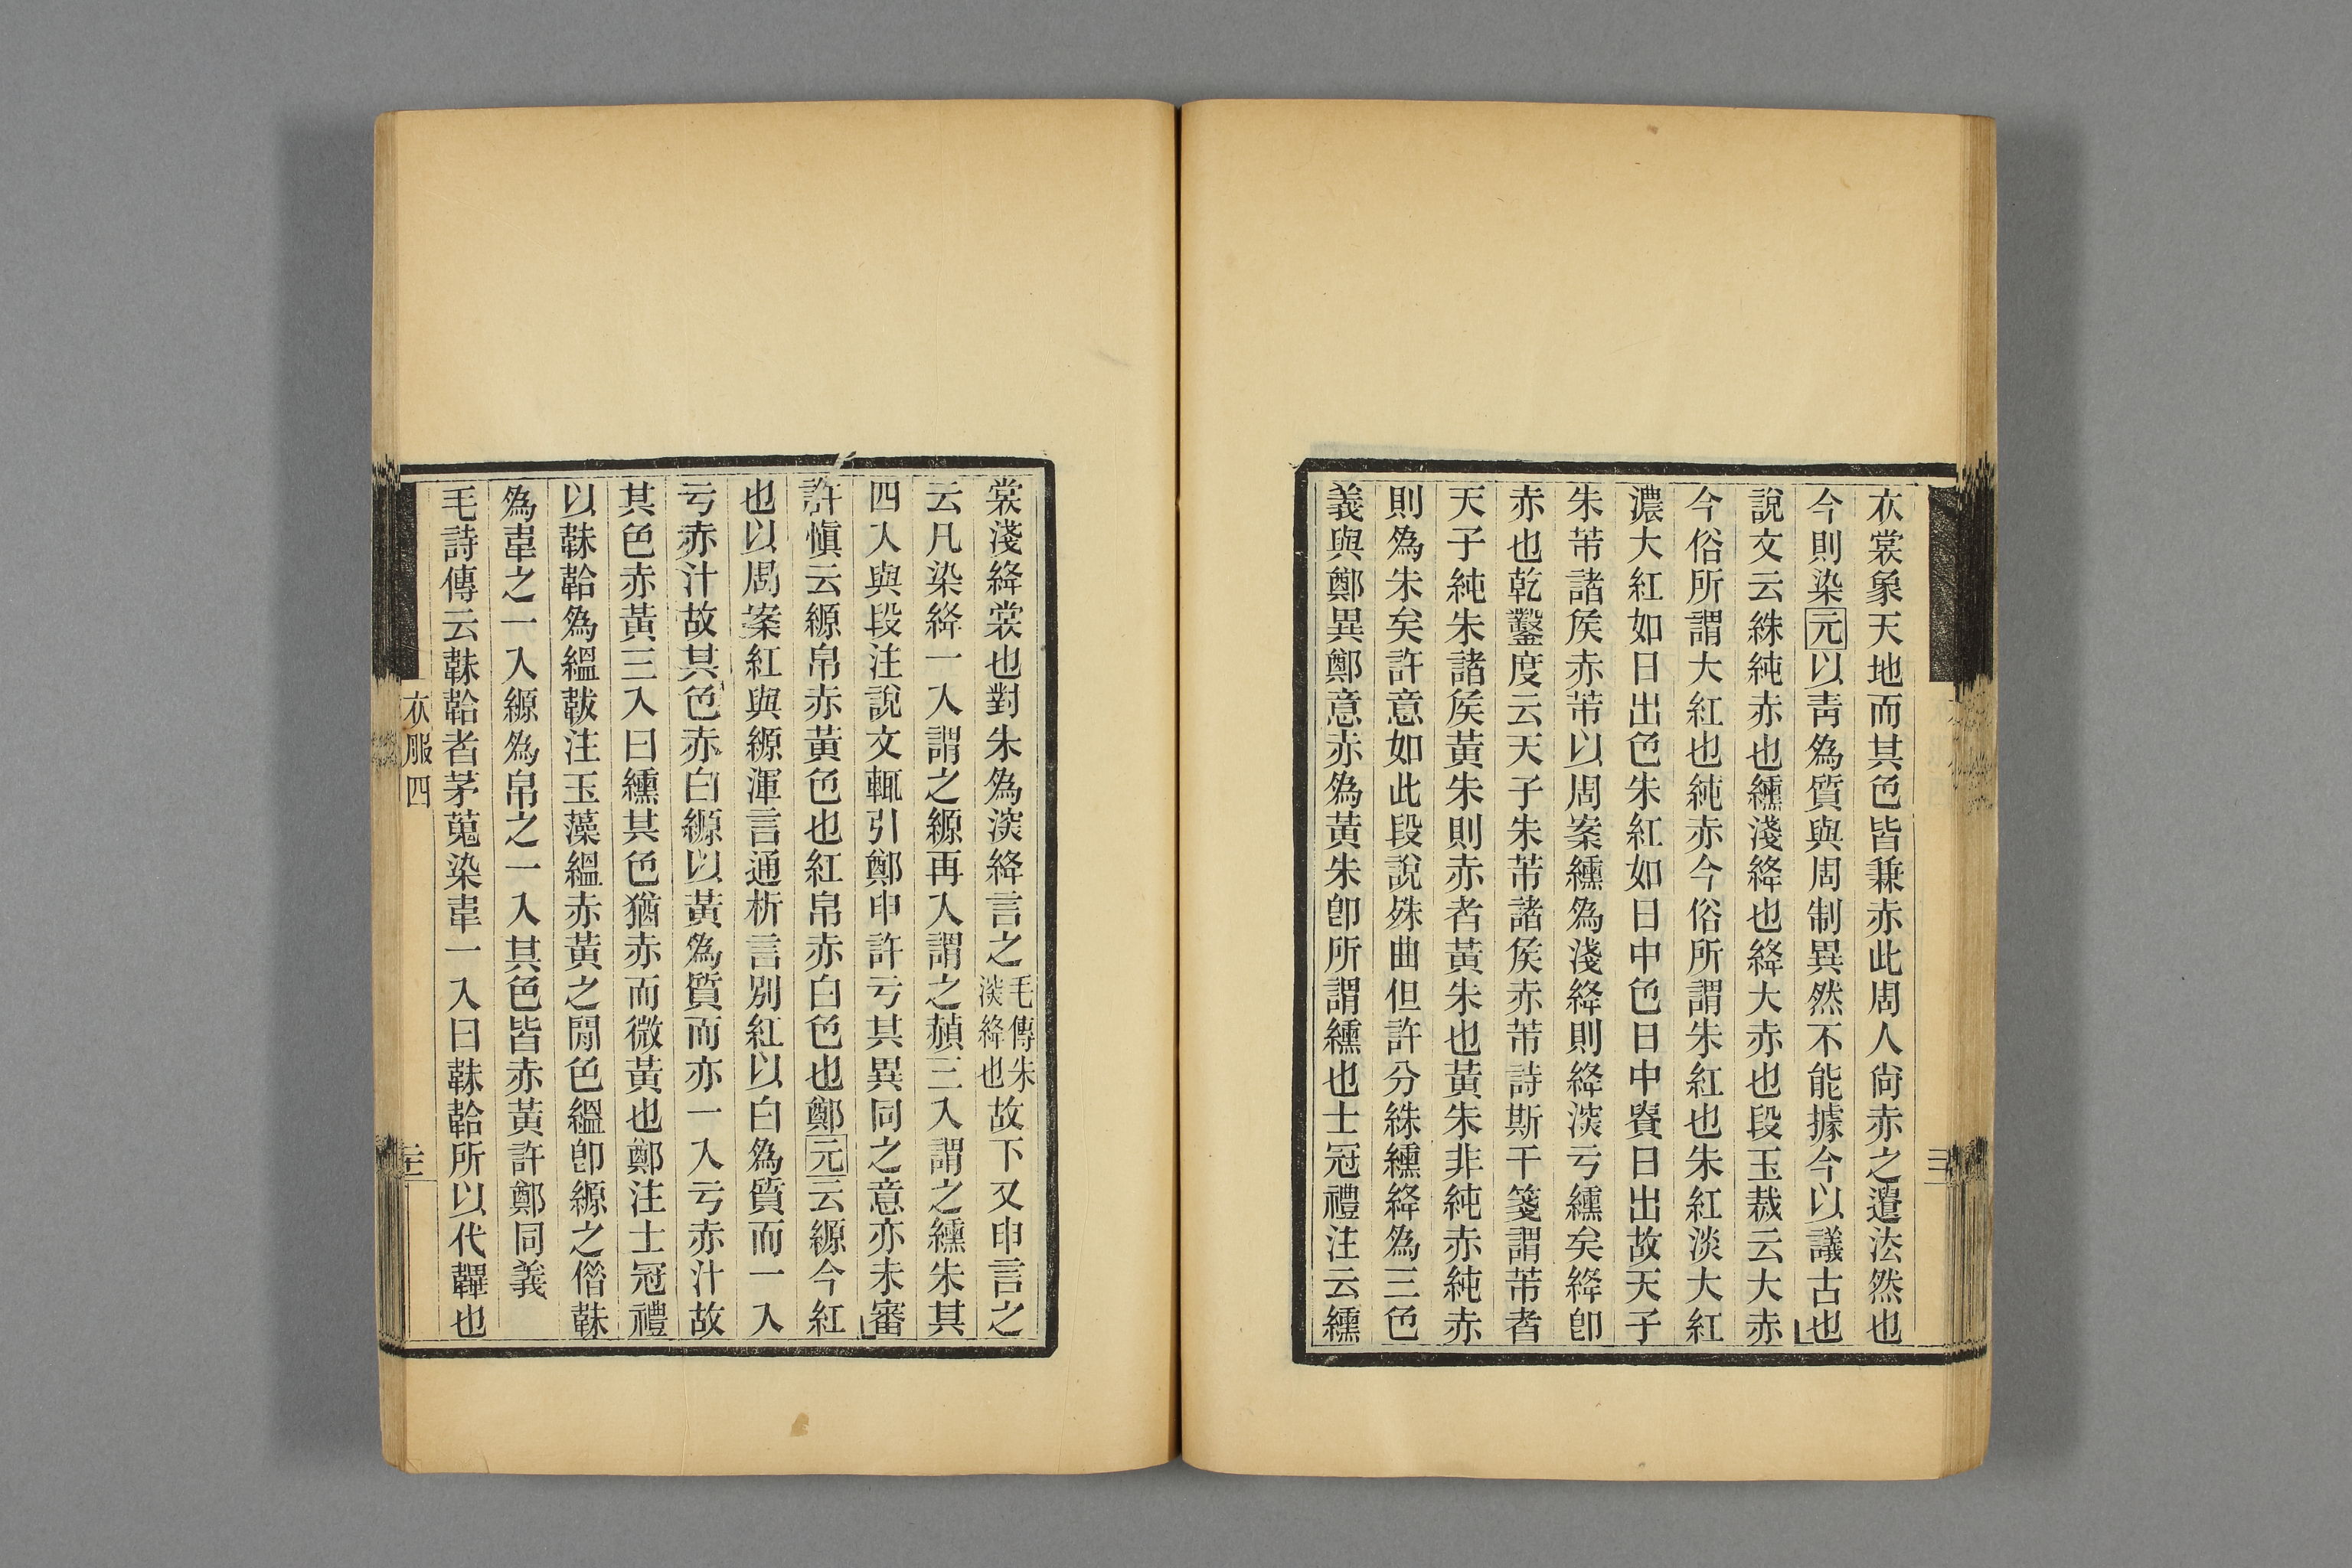 衣裳象天地而其色皆兼赤此周人尙赤之遺法然也
今則染元以靑爲質與周制異然不能據今以議古也
說文云絑純赤也纁淺絳也絳大赤也段玉裁云大赤
今俗所謂大紅也純赤今俗所謂朱紅也朱紅淡大紅
濃大紅如日出色朱紅如日中色日中貴日出故天子
朱芾諸矦赤芾以周案纁爲淺絳則絳淡亏纁矣絳卽
赤也乾鑿度云天子朱芾諸矦赤芾詩斯干箋謂芾者
天子純朱諸矦黃朱則赤者黃朱也黃朱非純赤純赤
則爲朱矣許意如此段說殊曲但許分絑纁絳爲三色
義與鄭異鄭意赤爲黃朱卽所謂纁也士冠禮注云纁
裳淺絳裳也對朱爲㴱絳言之毛傳朱㴱絳也故下又申言之
云凡染絳一入謂之縓再入謂之赬三入謂之纁朱其
四入與段注說文輒引鄭申許亏其異同之意亦未審
許愼云縓帛赤黃色也紅帛赤白色也鄭元云縓今紅
也以周案紅與縓渾言通析言別紅以白爲質而一入
亏赤汁故其色赤白縓以黃爲質而亦一入亏赤汁故
其色赤黃三入曰纁其色猶赤而微黃也鄭注士冠禮
以韎韐爲縕韍注玉藻縕赤黃之閒色縕卽縓之僭韎
爲韋之一入縓爲帛之一入其色皆赤黃許鄭同義
毛詩傳云韎韐者茅蒐染韋一入曰韎韐所以代韠也
衣服四